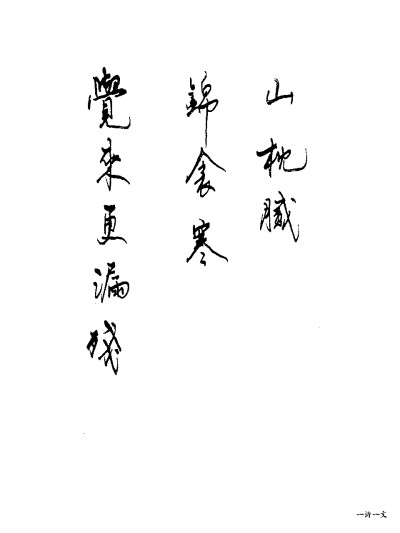 山枕膩
錦衾寒
覺來更漏殘
一许一文